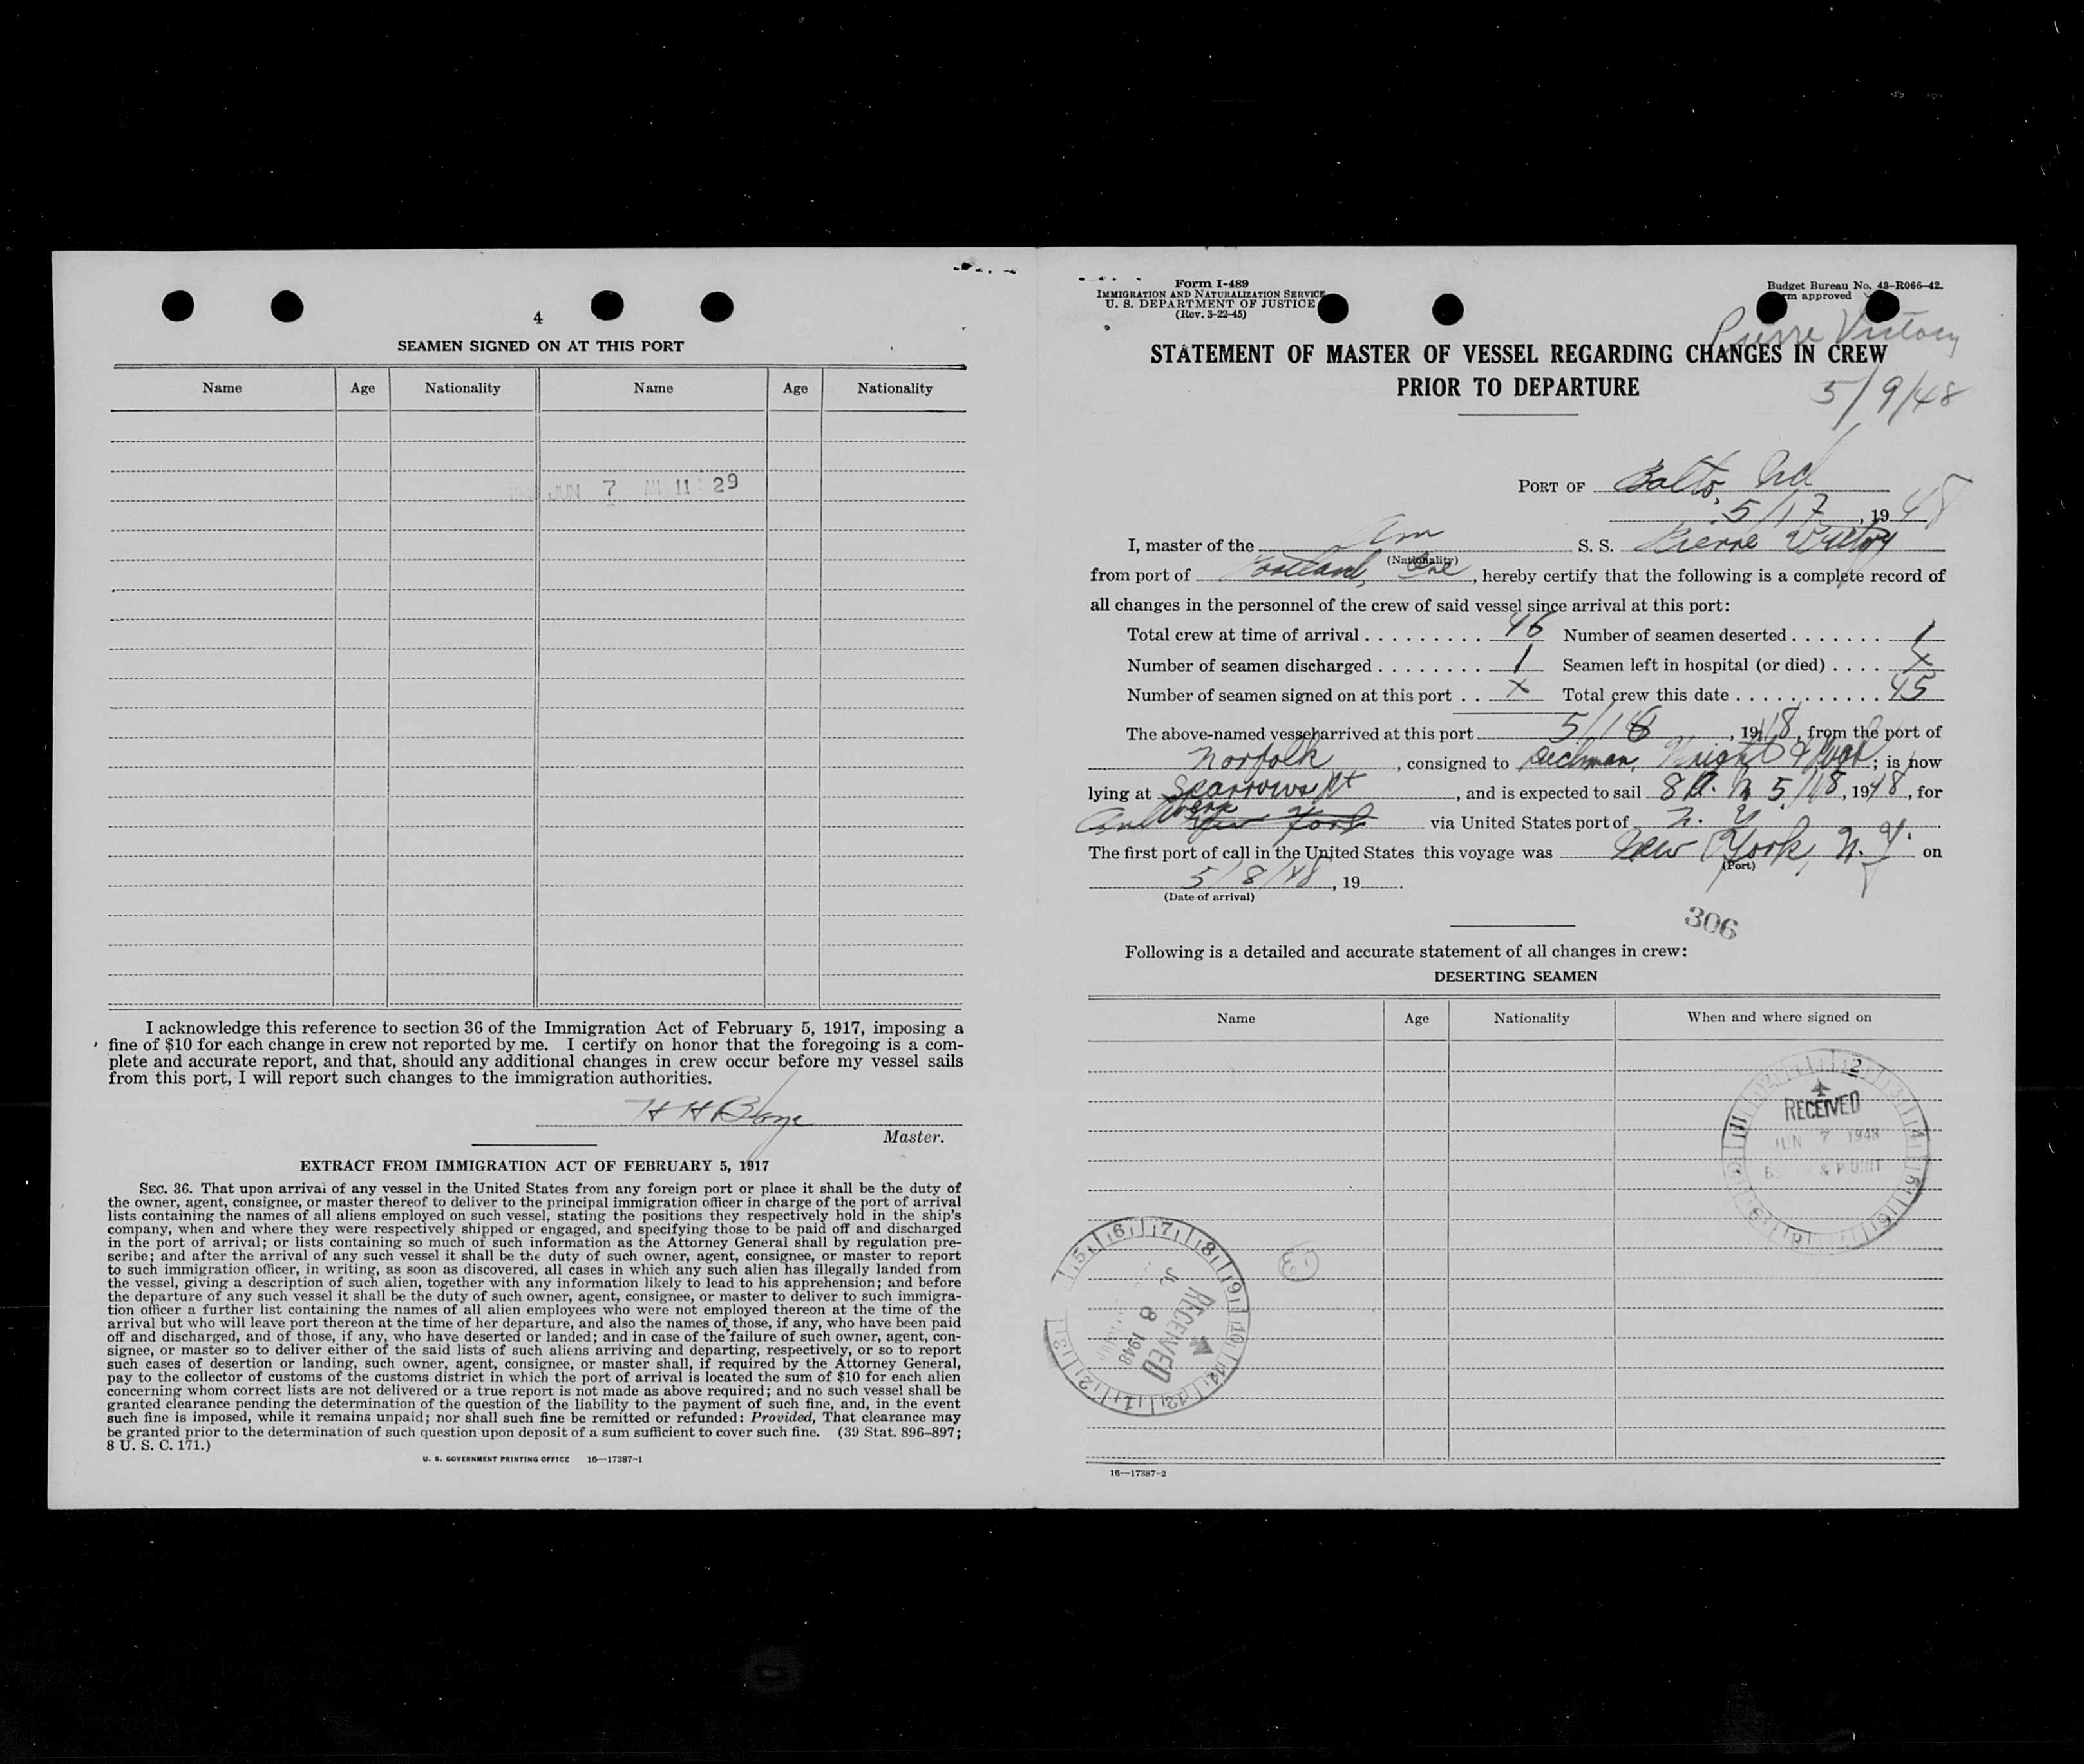 4
SEAMEN SIGNED ON AT THIS PORT
Name Age Nationality Name Age Nationality
JUN 7 AM 11:29
I acknowledge this reference to section 36 of the Immigration Act of February 5, 1917, imposing a
fine of $10 for each change in crew not reported by me. I certify on honor that the foregoing is a com-
plete and accurate report, and that, should any additional changes in crew occur before my vessel sails
from this port, I will report such changes to the immigration authorities.
H H
Master.
EXTRACT FROM IMMIGRATION ACT OF FEBRUARY 5, 1917
SEC. 36. That upon arrival of any vessel in the United States from any foreign port or place it shall be the duty of
the owner, agent, consignee, or master thereof to deliver to the principal immigration officer in charge of the port of arrival
lists containing the names of all aliens employed on such vessel, stating the positions they respectively hold in the ship's
company, when and where they were respectively shipped or engaged, and specifying those to be paid off and discharged
in the port of arrival; or lists containing so much of such information as the Attorney General shall by regulation pre-
scribe; and after the arrival of any such vessel it shall be the duty of such owner, agent, consignee, or master to report
to such immigration officer, in writing, as soon as discovered, all cases in which any such alien has illegally landed from
the vessel, giving a description of such alien, together with any information likely to lead to his apprehension; and before
the departure of any such vessel it shall be the duty of such owner, agent, consignee, or master to deliver to such immigra-
tion officer a further list containing the names of all alien employees who were not employed thereon at the time of the
arrival but who will leave port thereon at the time of her departure, and also the names of those, if any, who have been paid
off and discharged, and of those, if any, who have deserted or landed; and in case of the failure of such owner, agent, con-
signee, or master so to deliver either of the said lists of such aliens arriving and departing, respectively, or so to report
such cases of desertion or landing, such owner, agent, consignee, or master shall, if required by the Attorney General,
pay to the collector of customs of the customs district in which the port of arrival is located the sum of $10 for each alien
concerning whom correct lists are not delivered or a true report is not made as above required; and no such vessel shall be
granted clearance pending the determination of the question of the liability to the payment of such fine, and, in the event
such fine is imposed, while it remains unpaid; nor shall such fine be remitted or refunded: Provided, That clearance may
be granted prior to the determination of such question upon deposit of a sum sufficient to cover such fine. (39 Stat. 896–897;
8 U. S. C. 171.)
U. S. GOVERNMENT PRINTING OFFICE 16—17387-1
Form I-489
IMMIGRATION AND NATURALIZATION SERVICE
U. S. DEPARTMENT OF JUSTICE
(Rev. 3-22-45)
Budget Bureau No. 43-R066-42.
approved
Pierre Victory
STATEMENT OF MASTER OF VESSEL REGARDING CHANGES IN CREW
PRIOR TO DEPARTURE
5/9/48
PORT OF Balto, Md
5/17, 19 48
I, master of the Am S. S. Pierre Victory
(Nationality)
from port of Portland, Ore, hereby certify that the following is a complete record of
all changes in the personnel of the crew of said vessel since arrival at this port:
Total crew at time of arrival 46 Number of seamen deserted 1
Number of seamen discharged 1 Seamen left in hospital (or died) X
Number of seamen signed on at this port X Total crew this date 45
The above-named vessel arrived at this port 5/16, 1948, from the port of
Norfolk, consigned to ; is now
lying at Sparrows Pt, and is expected to sail 8 A. M 5/18, 1948, for
Antwerp New York via United States port of N. Y.
The first port of call in the United States this voyage was New York, N. Y. on
(Port)
5/8/48, 19
(Date of arrival)
306
Following is a detailed and accurate statement of all changes in crew:
DESERTING SEAMEN
Name Age Nationality When and where signed on
RECEIVED
JUN 7 1948
& P UNIT
RECEIVED
8 1948
16—17387-2